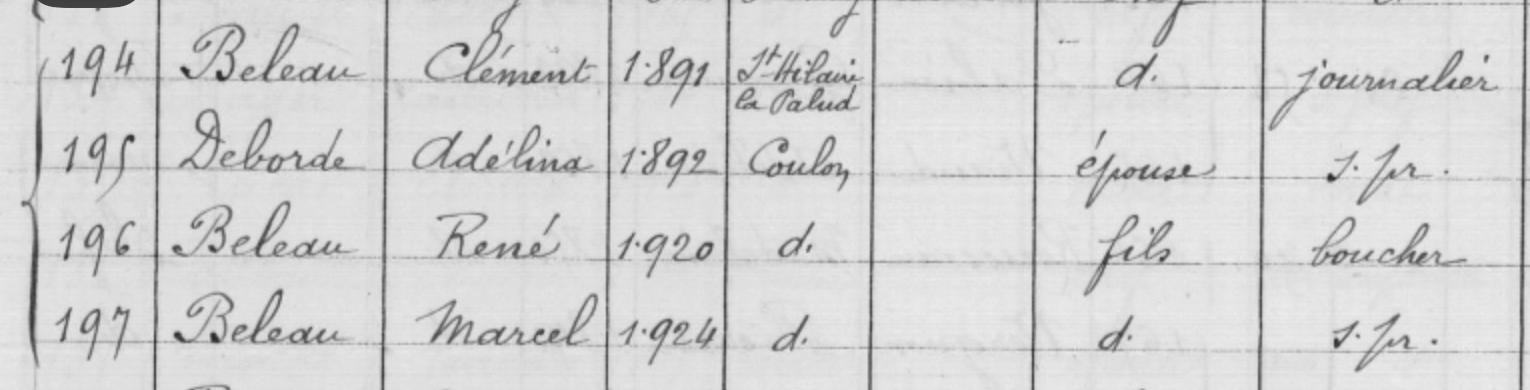 194 Beleau Clément 1.891 St Hilaire la Palud d. journalier
195 Deborde Adélina 1.892 Coulon épouse s. pr.
196 Beleau René 1.920 d. fils boucher
197 Beleau Marcel 1.924 d. d. s. pr.